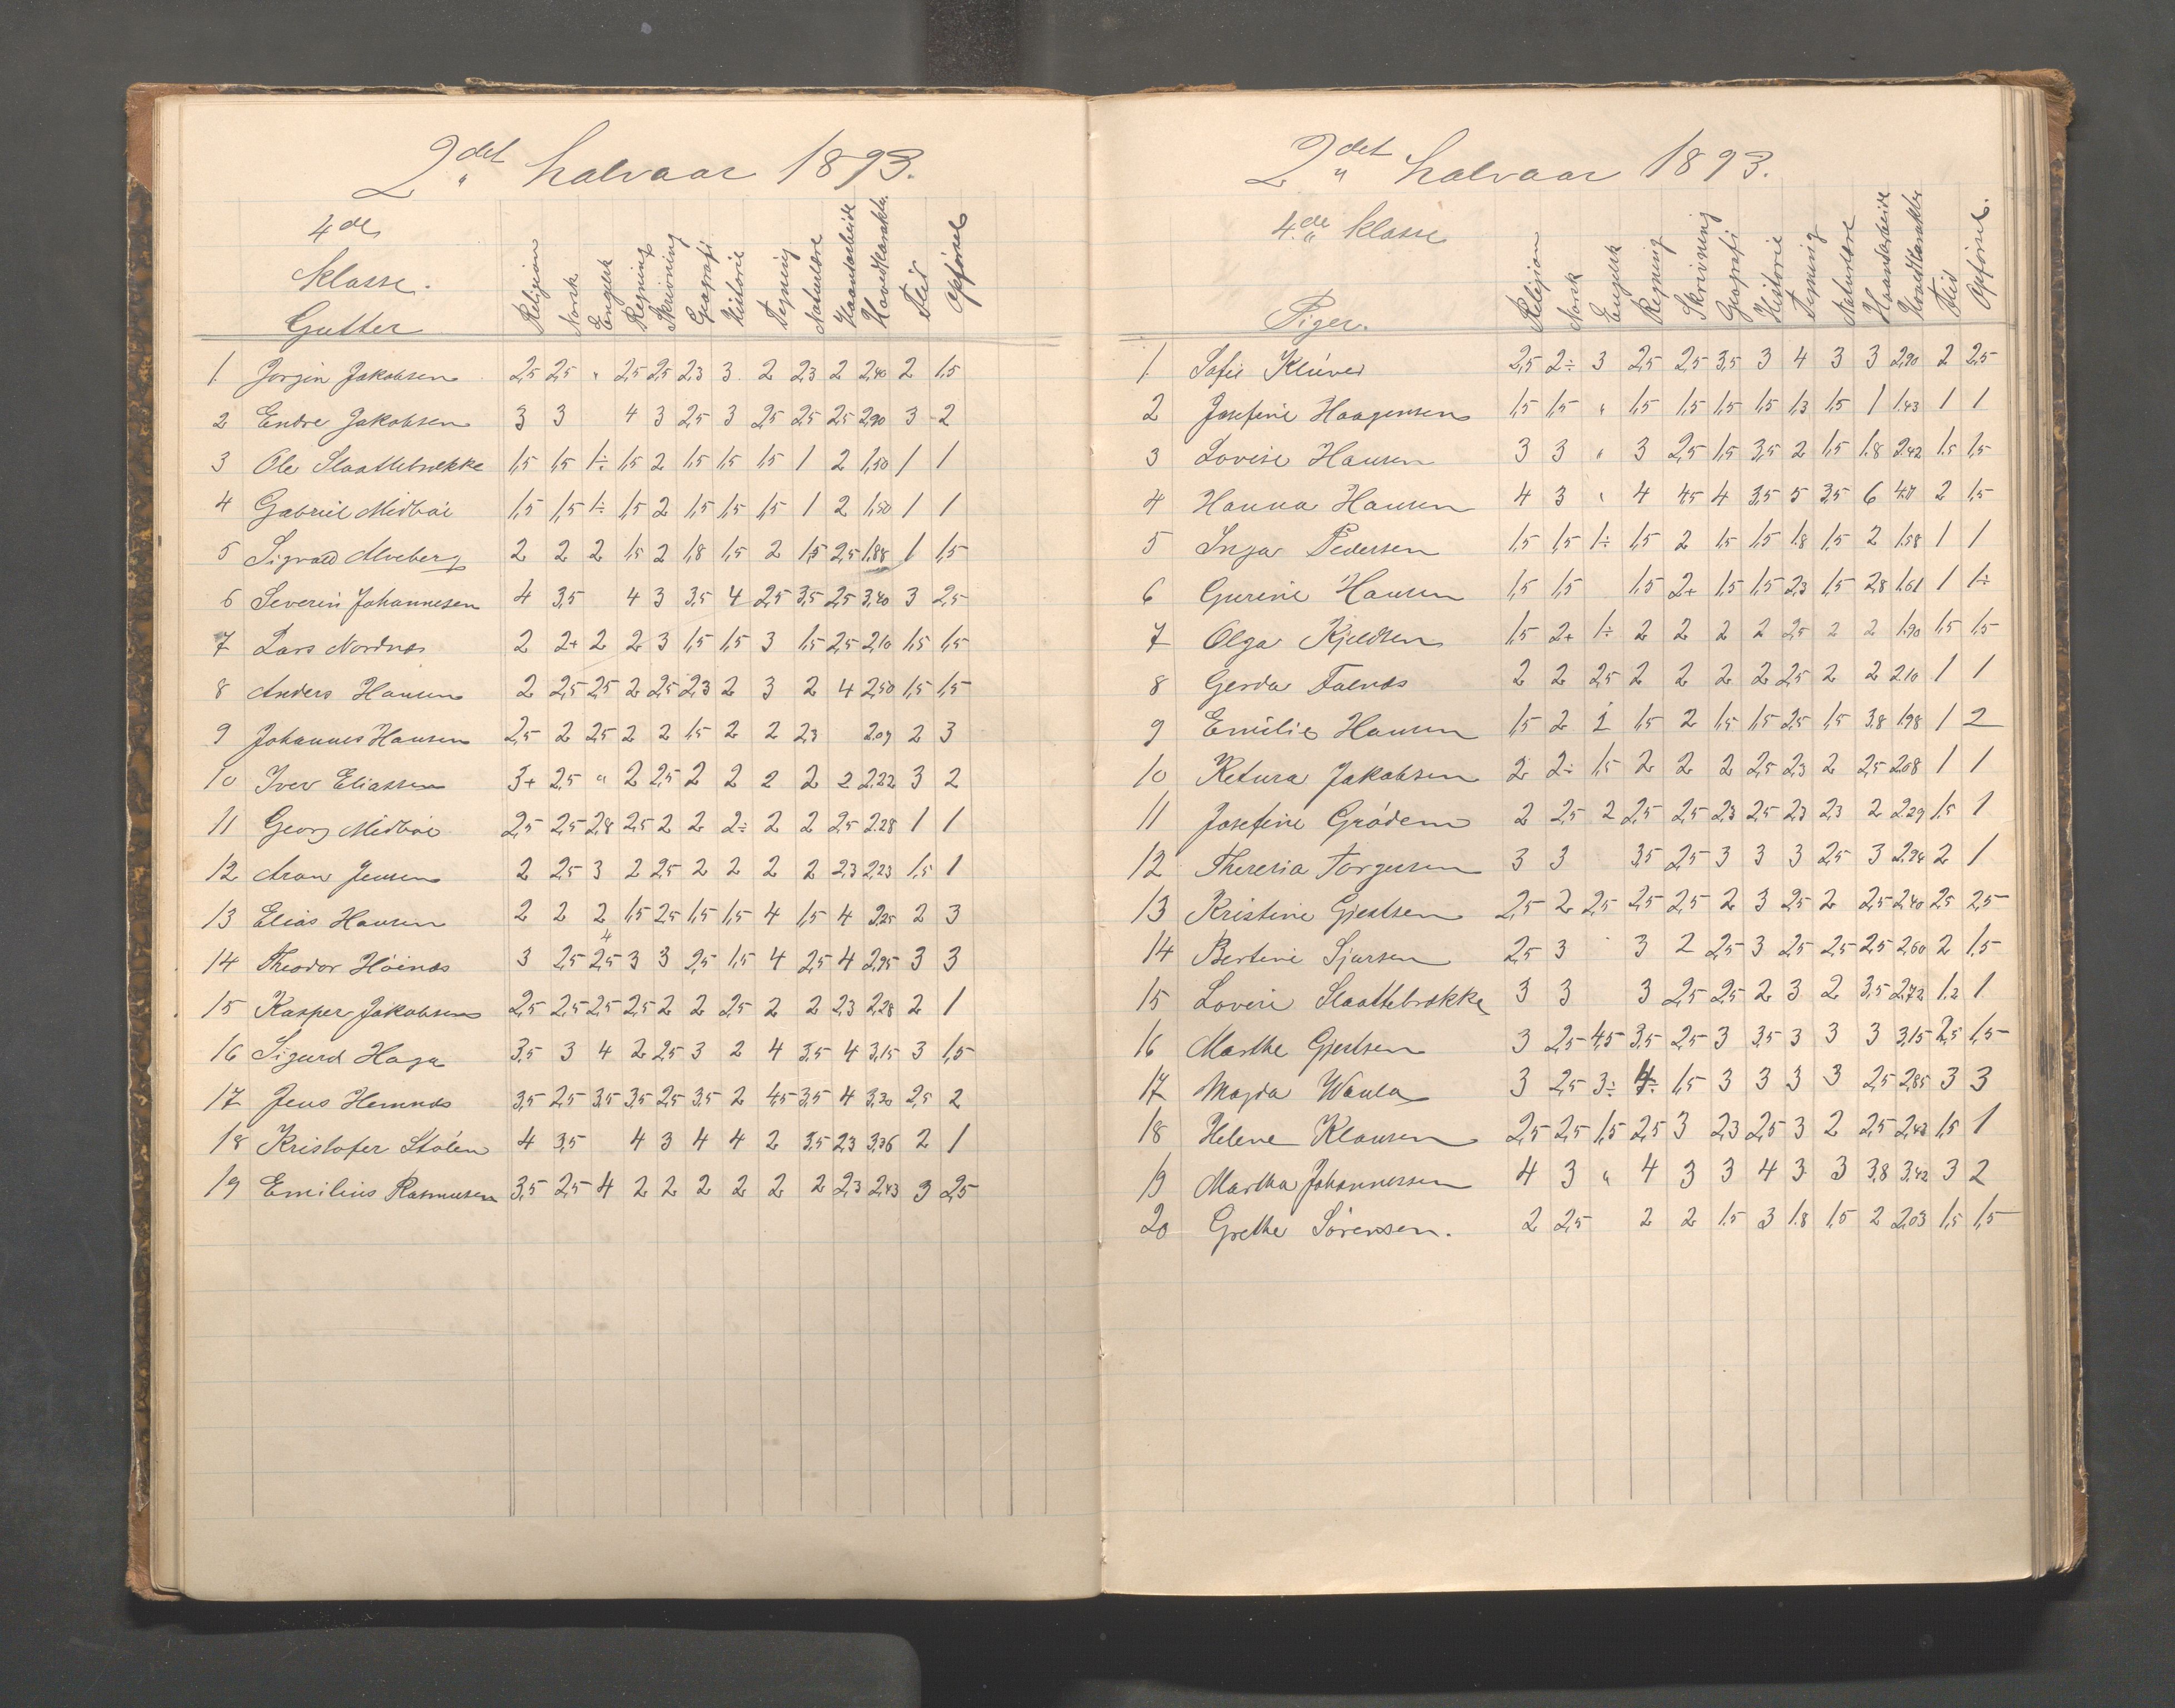 2det halvaar 1893.
4de
Klasse.
Gutter
Religion Norsk Engelsk Regning Skrivning Geografi Historie Tegning Naturlære Haandarbeide Hovedkarakter Flid Opførsel
1. Jørgen Jakobsen 2,5 2,5 " 2,5 2,5 2,3 3 2 2,3 2 2,40 2 1,5
2 Endre Jakobsen 3 3 4 3 2,5 3 2,5 2,5 2,5 2,90 3 2
3 Ole Slaattebrække 1,5 1,5 1÷ 1,5 2 1,5 1,5 1,5 1 2 1,50 1 1
4 Gabriel Midbøe 1,5 1,5 1÷ 1,5 2 1,5 1,5 1,5 1 2 1,50 1 1
5 Sigvald Alveberg 2 2 2 1,5 2 1,8 1,5 2 1,5 2,5 1,88 1 1,5
6 Severin Johannesen 4 3,5 4 3 3,5 4 2,5 3,5 2,5 3,40 3 2,5
7 Lars Nordnes 2 2+ 2 2 3 1,5 1,5 3 1,5 2,5 2,10 1,5 1,5
8 Anders Hansen 2 2,5 2,5 2 2,5 2,3 2 3 2 4 2,50 1,5 1,5
9 Johannes Hansen 2,5 2 2,5 2 2 1,5 2 2 2,3 2,09 2 3
10 Iver Eliassen 3+ 2,5 " 2 2,5 2 2 2 2 2 2,22 3 2
11 Georg Midbøe 2,5 2,5 2,8 2,5 2 2 2÷ 2 2 2,5 2,28 1 1
12 Aron Jensen 2 2,5 3 2 2,5 2 2 2 2 2,3 2,23 1,5 1
13 Elias Hansen 2 2 2 1,5 2,5 1,5 1,5 4 1,5 4 2,25 2 3
14 Theodor Høines 3 2,5 2,5 3 3 2,5 1,5 4 2,5 4 2,95 3 3
15 Kasper Jakobsen 2,5 2,5 2,5 2,5 2 2 2,5 2 2 2,3 2,28 2 1
16 Sigurd Haga 3,5 3 4 2 2,5 3 2 4 3,5 4 3,15 3 1,5
17 Jens Hemnes 3,5 2,5 3,5 3,5 2,5 3,5 2 4,5 3,5 4 3,30 2,5 2
18 Kristofer Stølen 4 3,5 4 3 4 4 2 3,5 2,3 3,36 2 1
19 Emilius Rasmusen 3,5 2,5 4 2 2 2 2 2 2 2,3 2,43 3 2,5
2det halvaar 1893.
4de klasse
Piger.
Religion Norsk Engelsk Regning Skrivning Geografi Historie Tegning Naturlære Haandarbeide Hovedkarakter Flid Opførsel.
1. Sofie Klüver 2,5 2÷ 3 2,5 2,5 3,5 3 4 3 3 2,90 2 2,5
2 Josefine Haagensen 1,5 1,5 " 1,5 1,5 1,5 1,5 1,3 1,5 1 1,43 1 1
3 Lovise Hansen 3 3 " 3 2,5 1,5 3,5 2 1,5 1,8 2,42 1,5 1,5
4 Hanna Hansen 4 3 " 4 4,5 4 3,5 5 3,5 6 4,17 2 1,5
5 Inga Pedersen 1,5 1,5 1÷ 1,5 2 1,5 1,5 1,8 1,5 2 1,58 1 1
6 Gurine Hansen 1,5 1,5 1,5 2+ 1,5 1,5 2,3 1,5 2,8 1,61 1 1÷
7 Olga Kjeldsen 1,5 2+ 1÷ 2 2 2 2 2,5 2 2 1,90 1,5 1,5
8 Gerda Falnes 2 2 2,5 2 2 2 2 2,5 2 2 2,10 1 1
9 Emilie Hansen 1,5 2 1 1,5 2 1,5 1,5 2,5 1,5 3,8 1,98 1 2
10 Ketura Jakobsen 2 2÷ 1,5 2 2 2 2,5 2,3 2 2,5 2,08 1 1
11 Josefine Grødem 2 2,5 2 2,5 2,5 2,3 2,5 2,3 2,3 2 2,29 1,5 1
12 Theresia Torgersen 3 3 3,5 2,5 3 3 3 2,5 3 2,94 2 1
13 Kristine Gjestsen 2,5 2 2,5 2,5 2,5 2 3 2,5 2 2,5 2,40 2,5 2,5
14 Bertine Sjursen 2,5 3 3 2 2,5 3 2,5 2,5 2,5 2,60 2 1,5
15 Lovise Slaattebrække 3 3 3 2,5 2,5 2 3 2 3,5 2,72 1,2 1
16 Marthe Gjestsen 3 2,5 4,5 3,5 2,5 3 3,5 3 3 3 3,15 2,5 1,5
17 Magda Waula 3 2,5 3÷ 4÷ 1,5 3 3 3 3 2,5 2,85 3 3
18 Helene Klausen 2,5 2,5 1,5 2,5 3 2,3 2,5 3 2 2,5 2,43 1,5 1
19 Martha Johannessen 4 3 " 4 3 3 4 3 3 3,8 3,42 3 2
20 Grethe Sørensen. 2 2,5 2 2 1,5 3 1,8 1,5 2 2,03 1,5 1,5